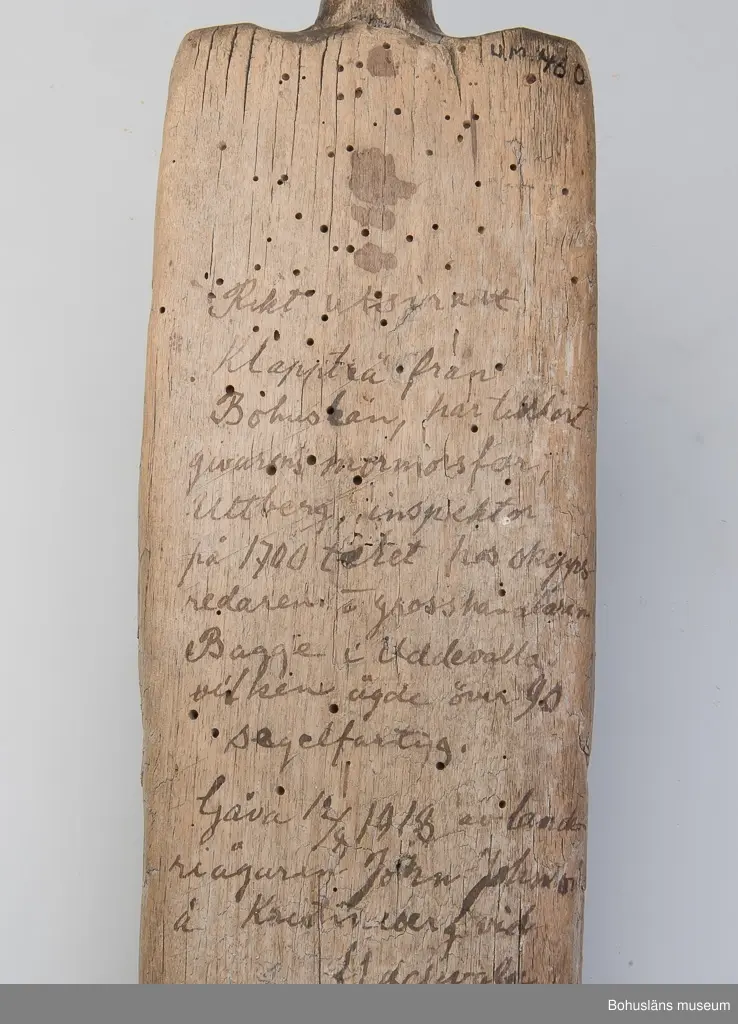 U.M. 460
Rikt utsirat
Klappträ från
Bohuslän, har tillhört
givarens mormorsfar,
Uttberg, inspektor
på 1700 talet hos skepps
redaren o grosshandlaren
Bagge i Uddevalla
vilken ägde över 90
segelfartyg.
Gåva 12/8 1918 av lande
riägaren John Johnson
å Kristineberg vid
Uddevalla
Bohusläns museum